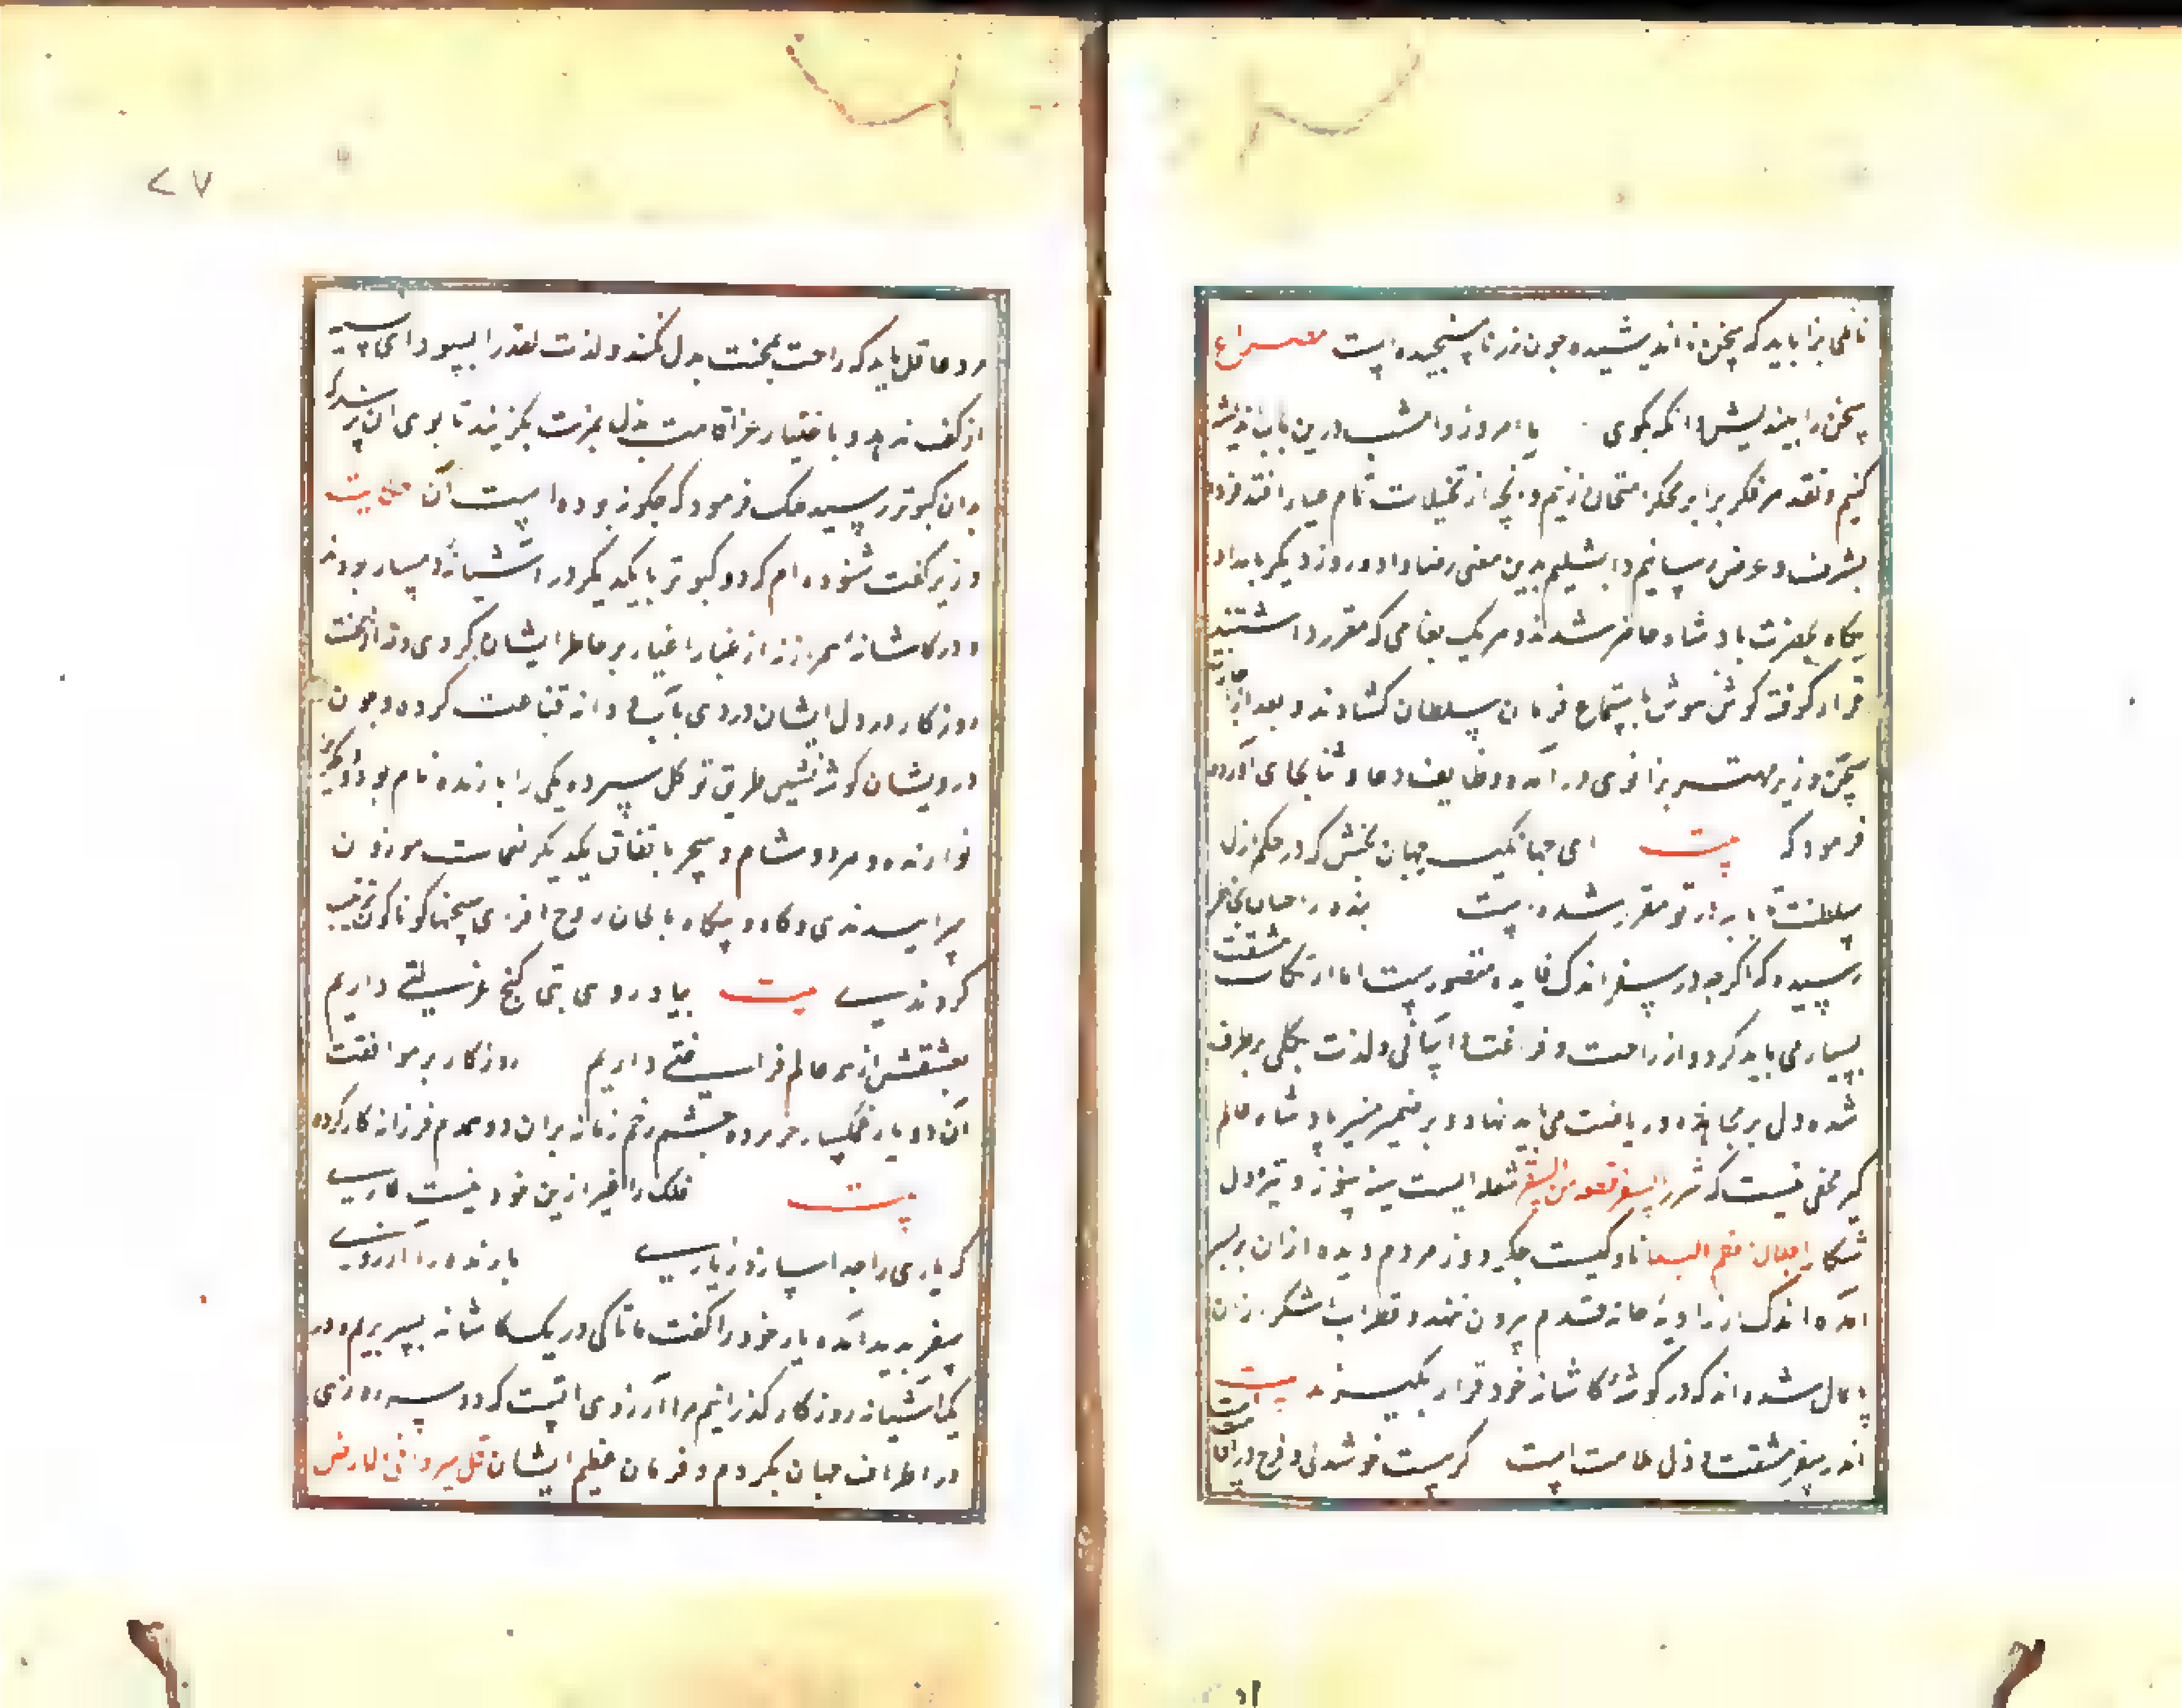 سخن را بیندیش وانگه بگوی یا امروز و امشب درین باب اندیشه
کنیم و نقد هر فکر بر محک امتحان زنیم و آنچه از تخیلات تمام عیار افتد فردا
بشرف عرض رسانیم دابشلیم بدین معنی رضا داد و روز دیگر بامداد
پگاه بحضرت پادشاه حاضر شدند و هر یک بمقامی که مقرر داشتند
قرار گرفته گوش هوش باستماع فرمان سلطان گشادند و بعد از
وزیر مهتر بزانوی در آمد و وظایف دعا و ثنا بجای آورد
فرمود که بیت ای جهانگیر جهان بخش که در حکم ازل
سلطنت تا بابد بر تو مقرر شده است بنده را چنان بخاطر
رسیده که اگر چه در سفر اندک فایده متصورست اما ارتکاب مشقت
بسیار می باید کرد و از راحت و فراغت و آسانی و لذت بکلی بر طرف
شده دل بر مجاهده و ریاضت می باید نهاد و بر ضمیر منیر پادشاه عالم
گیر مخفی نیست که شرر السفر قطعة من السقر شعله ایست سینه سوز و تیر دل
شکار ناوکیست جگر دوز مردم دیده ازان بر سر
آمده اند که از زاویه خانه قدم بیرون ننهند و قطرات اشک ازان
پامال شده اند که در گوشه کاشانه خود قرار نگیرند بیت
اندر سفر مشقت و ذل ملامت است گر هست خوشدلی و فرح در اقامت است
مرد عاقل باید که راحت بمحنت بدل نکند و لذت نقد را بسودای نسیه
از کف ندهد و باختیار عز اقامت بذل غربت نگزیند تا بوی آن نرسد که
بدان کبوتر رسید ملک فرمود که چگونه بوده است آن حکایت
وزیر گفت شنوده ام که دو کبوتر با یکدیگر در آشیانه دمساز بودند
و در کاشانه همراز نه از غبار اغیار بر خاطر ایشان گردی و نه از محنت
روزگار در دل ایشان دردی بآب و دانه قناعت کرده و چون
درویشان گوشه نشین طریق توکل سپرده یکی را بازنده نام بود و دیگری
نوازنده و هر دو شام و سحر باتفاق یکدیگر نغمات موزون
سرائیدندی و گاه و بیگاه بالحان روح افزای سجعهای گوناگون ترتیب
کردندی بیت بیاد روی بتی کنج عزلتی داریم
بعشقش از همه عالم فراغتی داریم روزگار بر موافقت
آن دو یار غمگسار چشم زخم زمانه بران دو همدم فرزانه کار کرده
بیت فلک را غیر ازین خود نیست کاری
که یاری را جدا سازد ز یاری بازنده را آرزوی
سفر پدید آمده یار خود را گفت ما تا کی در یک کاشانه بسر بریم و در
یک آشیانه روزگار گذرانیم مرا آرزوی آنست که دو سه روزی
در اطراف جهان بگردم و فرمان عظیم ایشان قل سیروا فی الارض